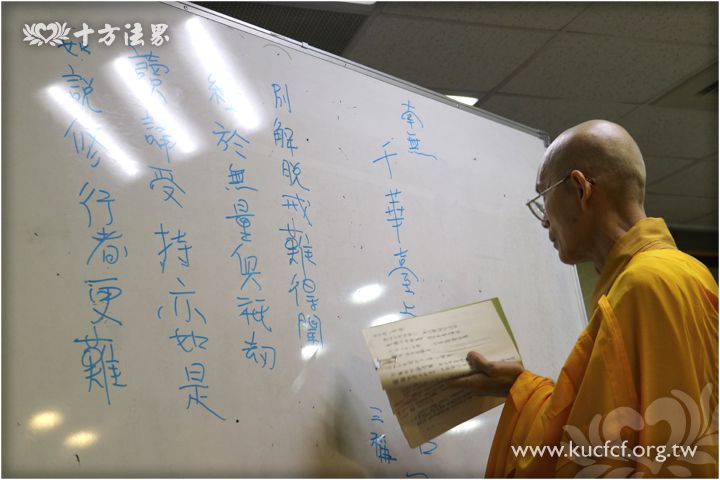 十方法界
南無
千華臺上
三稱
別解脫戒難得聞
經於無量俱祇劫
讀誦受持亦如是
如說修行者更難
www.kucfcf.org.tw